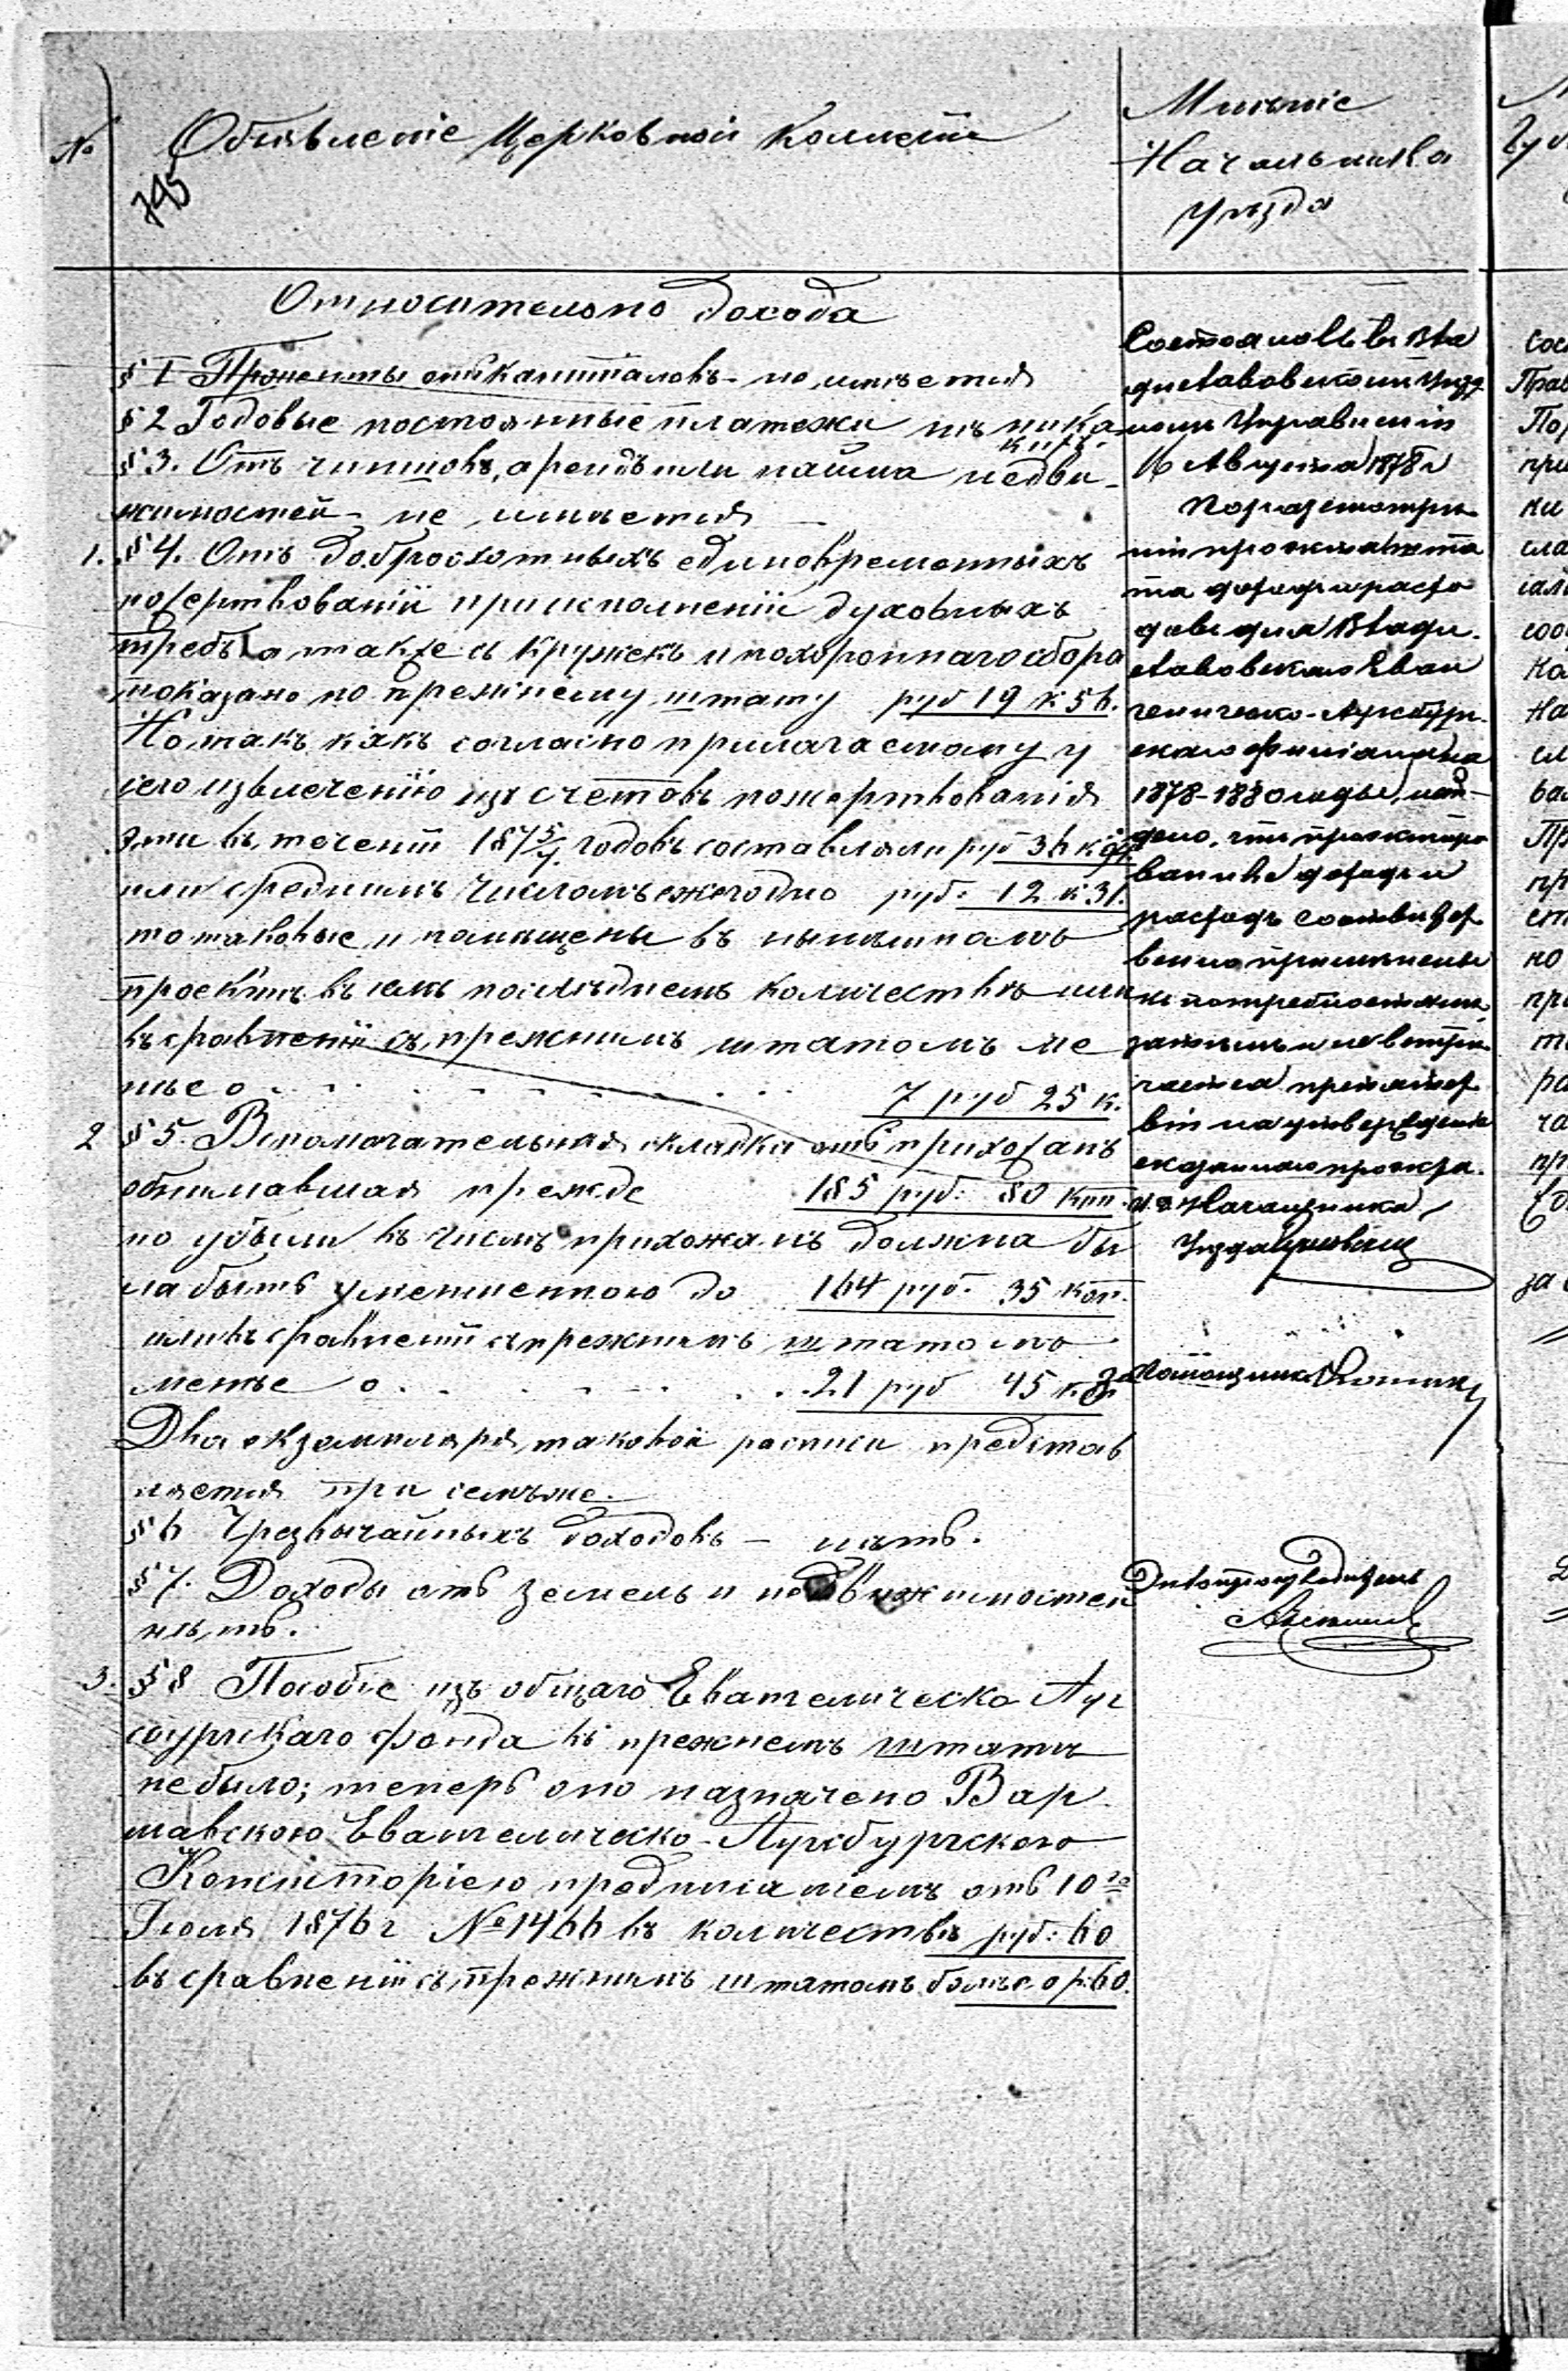 №
Объявленіе Церковной Коллегіи
Мнѣніе
Начальника
Уѣзда
795
Относительно дохода
§ 1 Проценты отъ капиталовъ - не имѣется
§ 2 Годовые постоянные платежи нѣ ника
кихъ.
§ 3. Отъ чиншовъ, аренды или найма недви-
жимостей - не имѣется
1. § 4. Отъ доброхотныхъ единовременныхъ
пожертвованій при исполненіи духовныхъ
требъ а также съ кружекъ и похороннаго сбора
показано по прежнему штату руб 19 к 56.
Но такъ какъ согласно прилагаемому у
сего извлеченію изъ счетовъ пожертвованія
эти въ теченіи 1875/7 годовъ составляли руб 36 к
или среднимъ числомъ ежегодно руб. 12 к 31.
то таковые и помѣщены въ нынѣшнемъ
проектѣ въ семъ послѣднемъ количествѣ или
въ сравненіи съ прежнимъ штатомъ ме
нѣе о . . . . 7 руб 25 к.
2 § 5. Вспомогательная складка отъ прихожанъ
обнимавшая прежде 185 руб. 80 коп.
по убыли въ числѣ прихожанъ должна бы
ла быть уменшенною до 164 руб. 35 коп.
или въ сравненіи съ прежнимъ штатомъ
менѣе о . . . . 21 руб 45 к.
Два экземпляра таковой росписи представ
ляется при семъ же.
§ 6 Чрезвычайныхъ доходовъ — нѣтъ.
§ 7. Доходы отъ земель и недвижимостей
нѣтъ.
3. § 8 Пособіе изъ общаго Евангелическо Ауг
сбургскаго фонда въ прежнемъ штатѣ
не было; теперь оно назначено Вар
шавскою Евангелическо-Аугсбургскою
Консисторіею предписаніемъ отъ 10го
Іюля 1876 г № 1466 въ количествѣ руб: 60
въ сравненіи съ прежнимъ штатомъ болѣе о р. 60.
Состоялось въ Вла
диславовскомъ Уѣзд
номъ Управленіи
16 Августа 1878 г
По разсмотрѣ
ніи проекта
та дохода и расхо
довъ для Влади-
славовскаго Еван
гелическо-Аугсбург
скаго филіала на
1878-1880 годы, най
дено, что проектиро
ванные доходы и
расходъ
примѣнены
къ потребностямъ,
затѣмъ и не встрѣ
чается препятст
вій на утвержденіе
сказаннаго проекта.
И. д. Начальника
Уѣзда
за Помощника
Дѣлопроизводитель